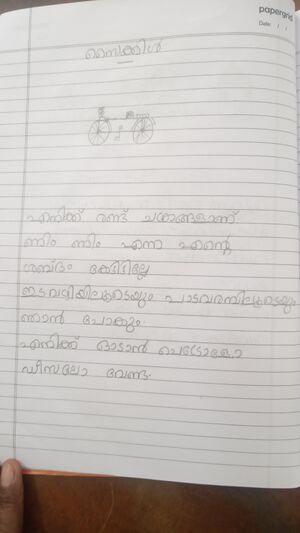 papergrid
Date: / /
സൈക്കിൾ
എനിക്ക് രണ്ട് ചക്രങ്ങളാണ്
ണിം ണിം എന്ന എന്റെ
ശബ്ദം കേട്ടിട്ടില്ലേ
ഇടവഴിയിലൂടെയും പാടവരമ്പിലൂടെയും
ഞാൻ പോകും
എനിക്ക് ഓടാൻ പെട്രോളോ
ഡീസലോ വേണ്ട.